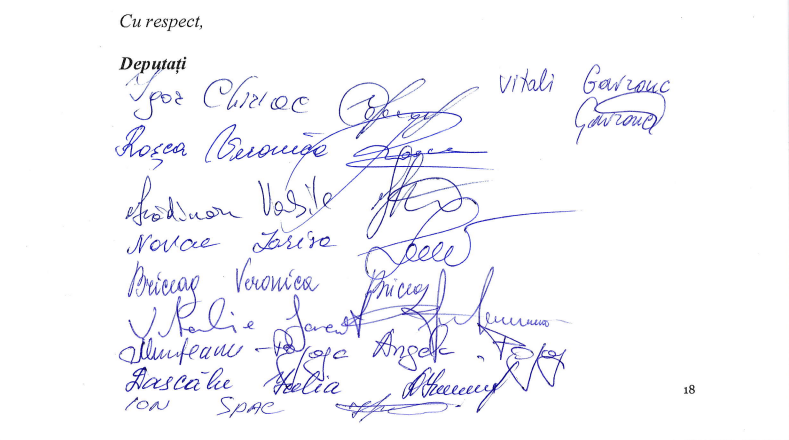 Cu respect,
Deputați
Igor Chiriac
Vitali Gavrouc
Roșca Veronica
Grădinaru Vasile
Novac Larisa
Briceag Veronica Briceag
Vitalie
Munteanu-Pojoga Angela
Dascălu Iulia
ION SPAC
18